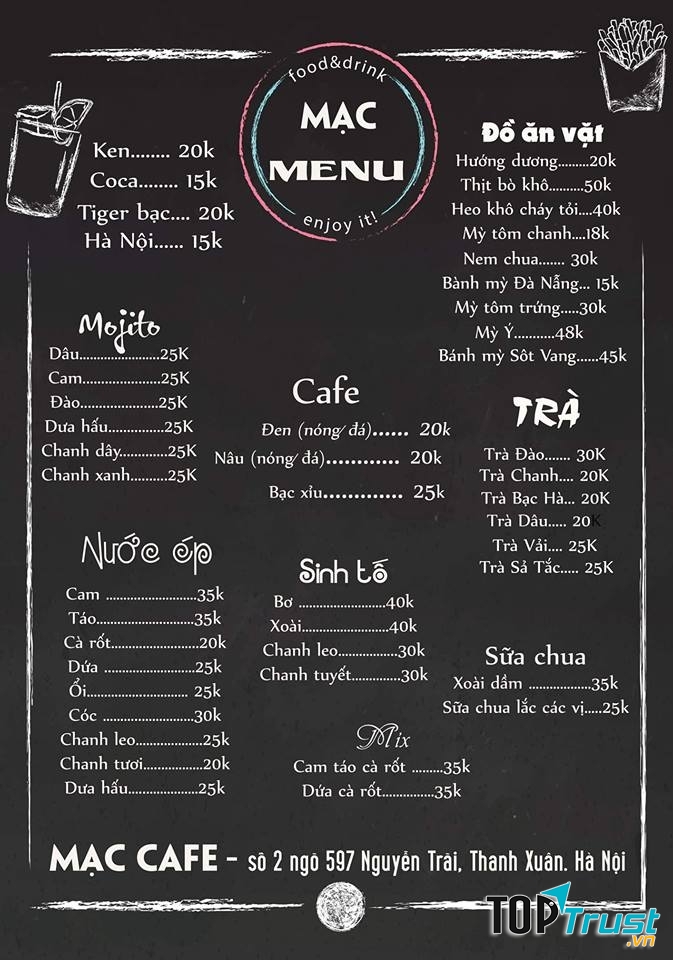 food&drink
MẠC
MENU
enjoy it!
Ken........ 20k
Coca........ 15k
Tiger bạc.... 20k
Hà Nội...... 15k
Đồ ăn vặt
Hướng dương.........20k
Thịt bò khô..........50k
Heo khô cháy tỏi....40k
Mỳ tôm chanh....18k
Nem chua....... 30k
Bành mỳ Đà Nẵng... 15k
Mỳ tôm trứng.....30k
Mỳ Ý...........48k
Bánh mỳ Sôt Vang......45k
Mojito
Dâu.......................25K
Cam.......................25K
Đào.......................25K
Dưa hấu.................25K
Chanh dây..............25K
Chanh xanh...........25K
Cafe
Đen (nóng/đá)...... 20k
Nâu (nóng/đá)............ 20k
Bạc xỉu............. 25k
TRÀ
Trà Đào....... 30K
Trà Chanh.... 20K
Trà Bạc Hà... 20K
Trà Dâu..... 20K
Trà Vải.... 25K
Trà Sả Tắc..... 25K
Nước ép
Cam ..........................35k
Táo............................35k
Cà rốt.........................20k
Dứa ..........................25k
Ổi............................. 25k
Cóc ..........................30k
Chanh leo...................25k
Chanh tươi.................20k
Dưa hấu....................25k
Sinh tố
Bơ .........................40k
Xoài.........................40k
Chanh leo.................30k
Chanh tuyết..............30k
Sữa chua
Xoài dầm ..................35k
Sữa chua lắc các vị.....25k
Mix
Cam táo cà rốt .........35k
Dứa cà rốt...............35k
MẠC CAFE - sô 2 ngõ 597 Nguyễn Trãi, Thanh Xuân. Hà Nội
TOPTrust
.vn